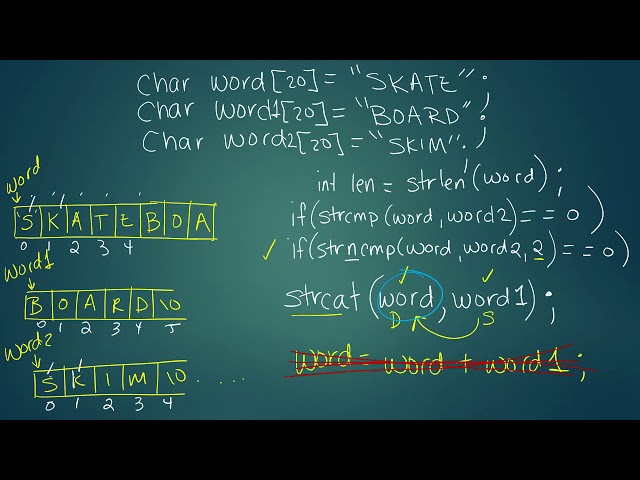 char word[20] = "SKATE";
char word1[20] = "BOARD";
char word2[20] = "SKIM";
int len = strlen(word);
if(strcmp(word, word2) == 0)
✓ if(strncmp(word, word2, 2) == 0)
strcat(word, word1);
D S
word = word + word1;
word
S K A T E B O A
0 1 2 3 4
word1
B O A R D \0
0 1 2 3 4 5
word2
S K I M \0 . . . . .
0 1 2 3 4